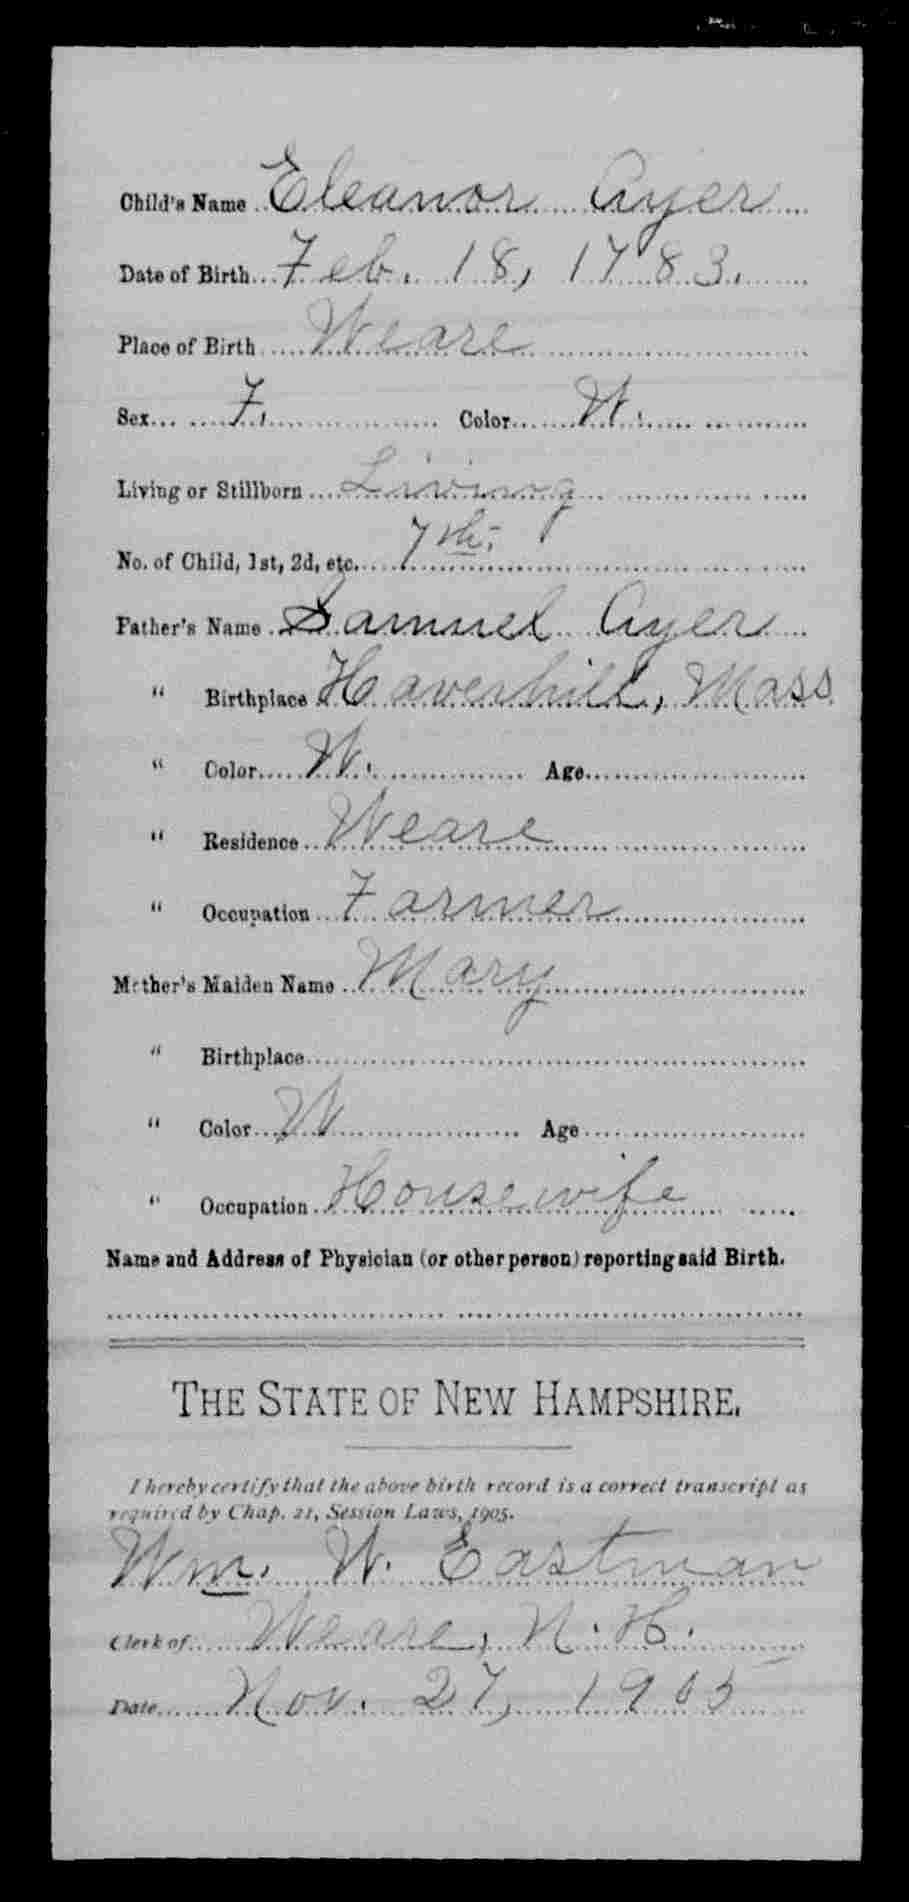 Child's Name Eleanor Ayer
Date of Birth Feb. 18, 1783.
Place of Birth Weare
Sex F. Color W.
Living or Stillborn Living
No. of Child, 1st, 2d, etc. 7th.
Father's Name Samuel Ayer
" Birthplace Haverhill, Mass
" Color W. Age
" Residence Weare
" Occupation Farmer
Mother's Maiden Name Mary
" Birthplace
" Color W Age
" Occupation Housewife
Name and Address of Physician (or other person) reporting said Birth.
THE STATE OF NEW HAMPSHIRE.
I hereby certify that the above birth record is a correct transcript as
required by Chap. 21, Session Laws, 1905.
Wm. W. Eastman
Clerk of Weare, N. H.
Date Nov. 27, 1905